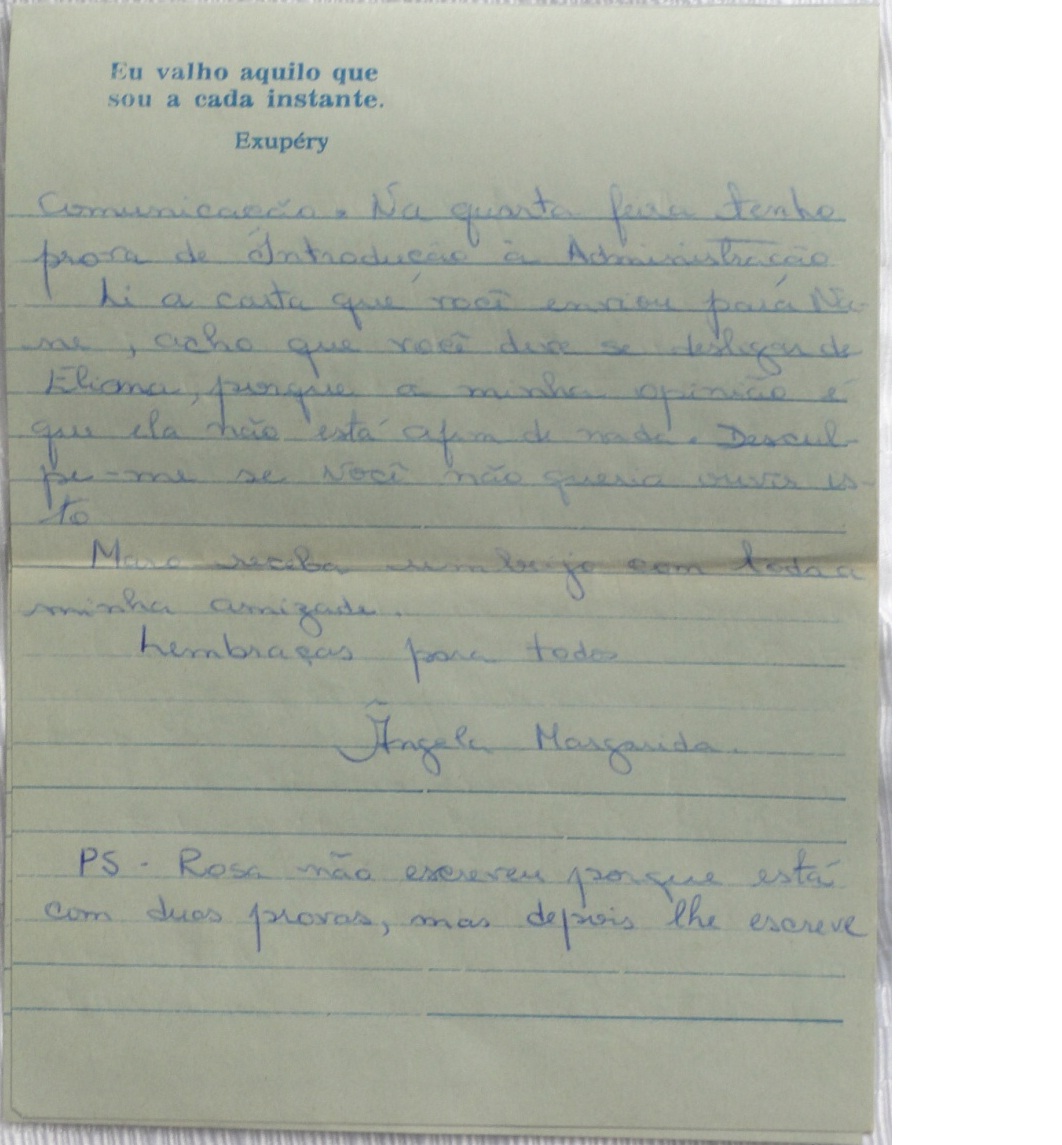 Eu valho aquilo que
sou a cada instante.
Exupéry
Comunicação. Na quarta feira tenho
prova de Introdução à Administração
Li a carta que você enviou para Na-
ne, acho que você deve se desligar de
Eliana, porque a minha opinião é
que ela não está afim de nada. Descul-
pe-me se você não queria ouvir is-
to
receba um beijo com toda a
minha amizade.
Lembraças para todos
Ângela Margarida.
PS - Rosa não escreveu porque está
com duas provas, mas depois lhe escreve